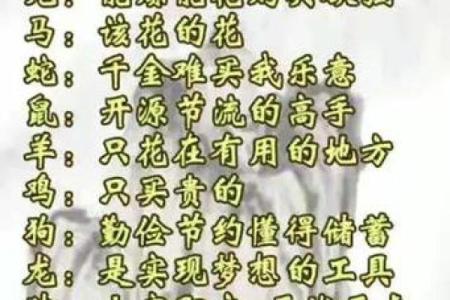 马：该花的花
蛇：千金难买我乐意
鼠：开源节流的高手
羊：只花在有用的地方
鸡：只买贵的
狗：勤俭节约懂得储蓄
龙：是实现梦想的工具